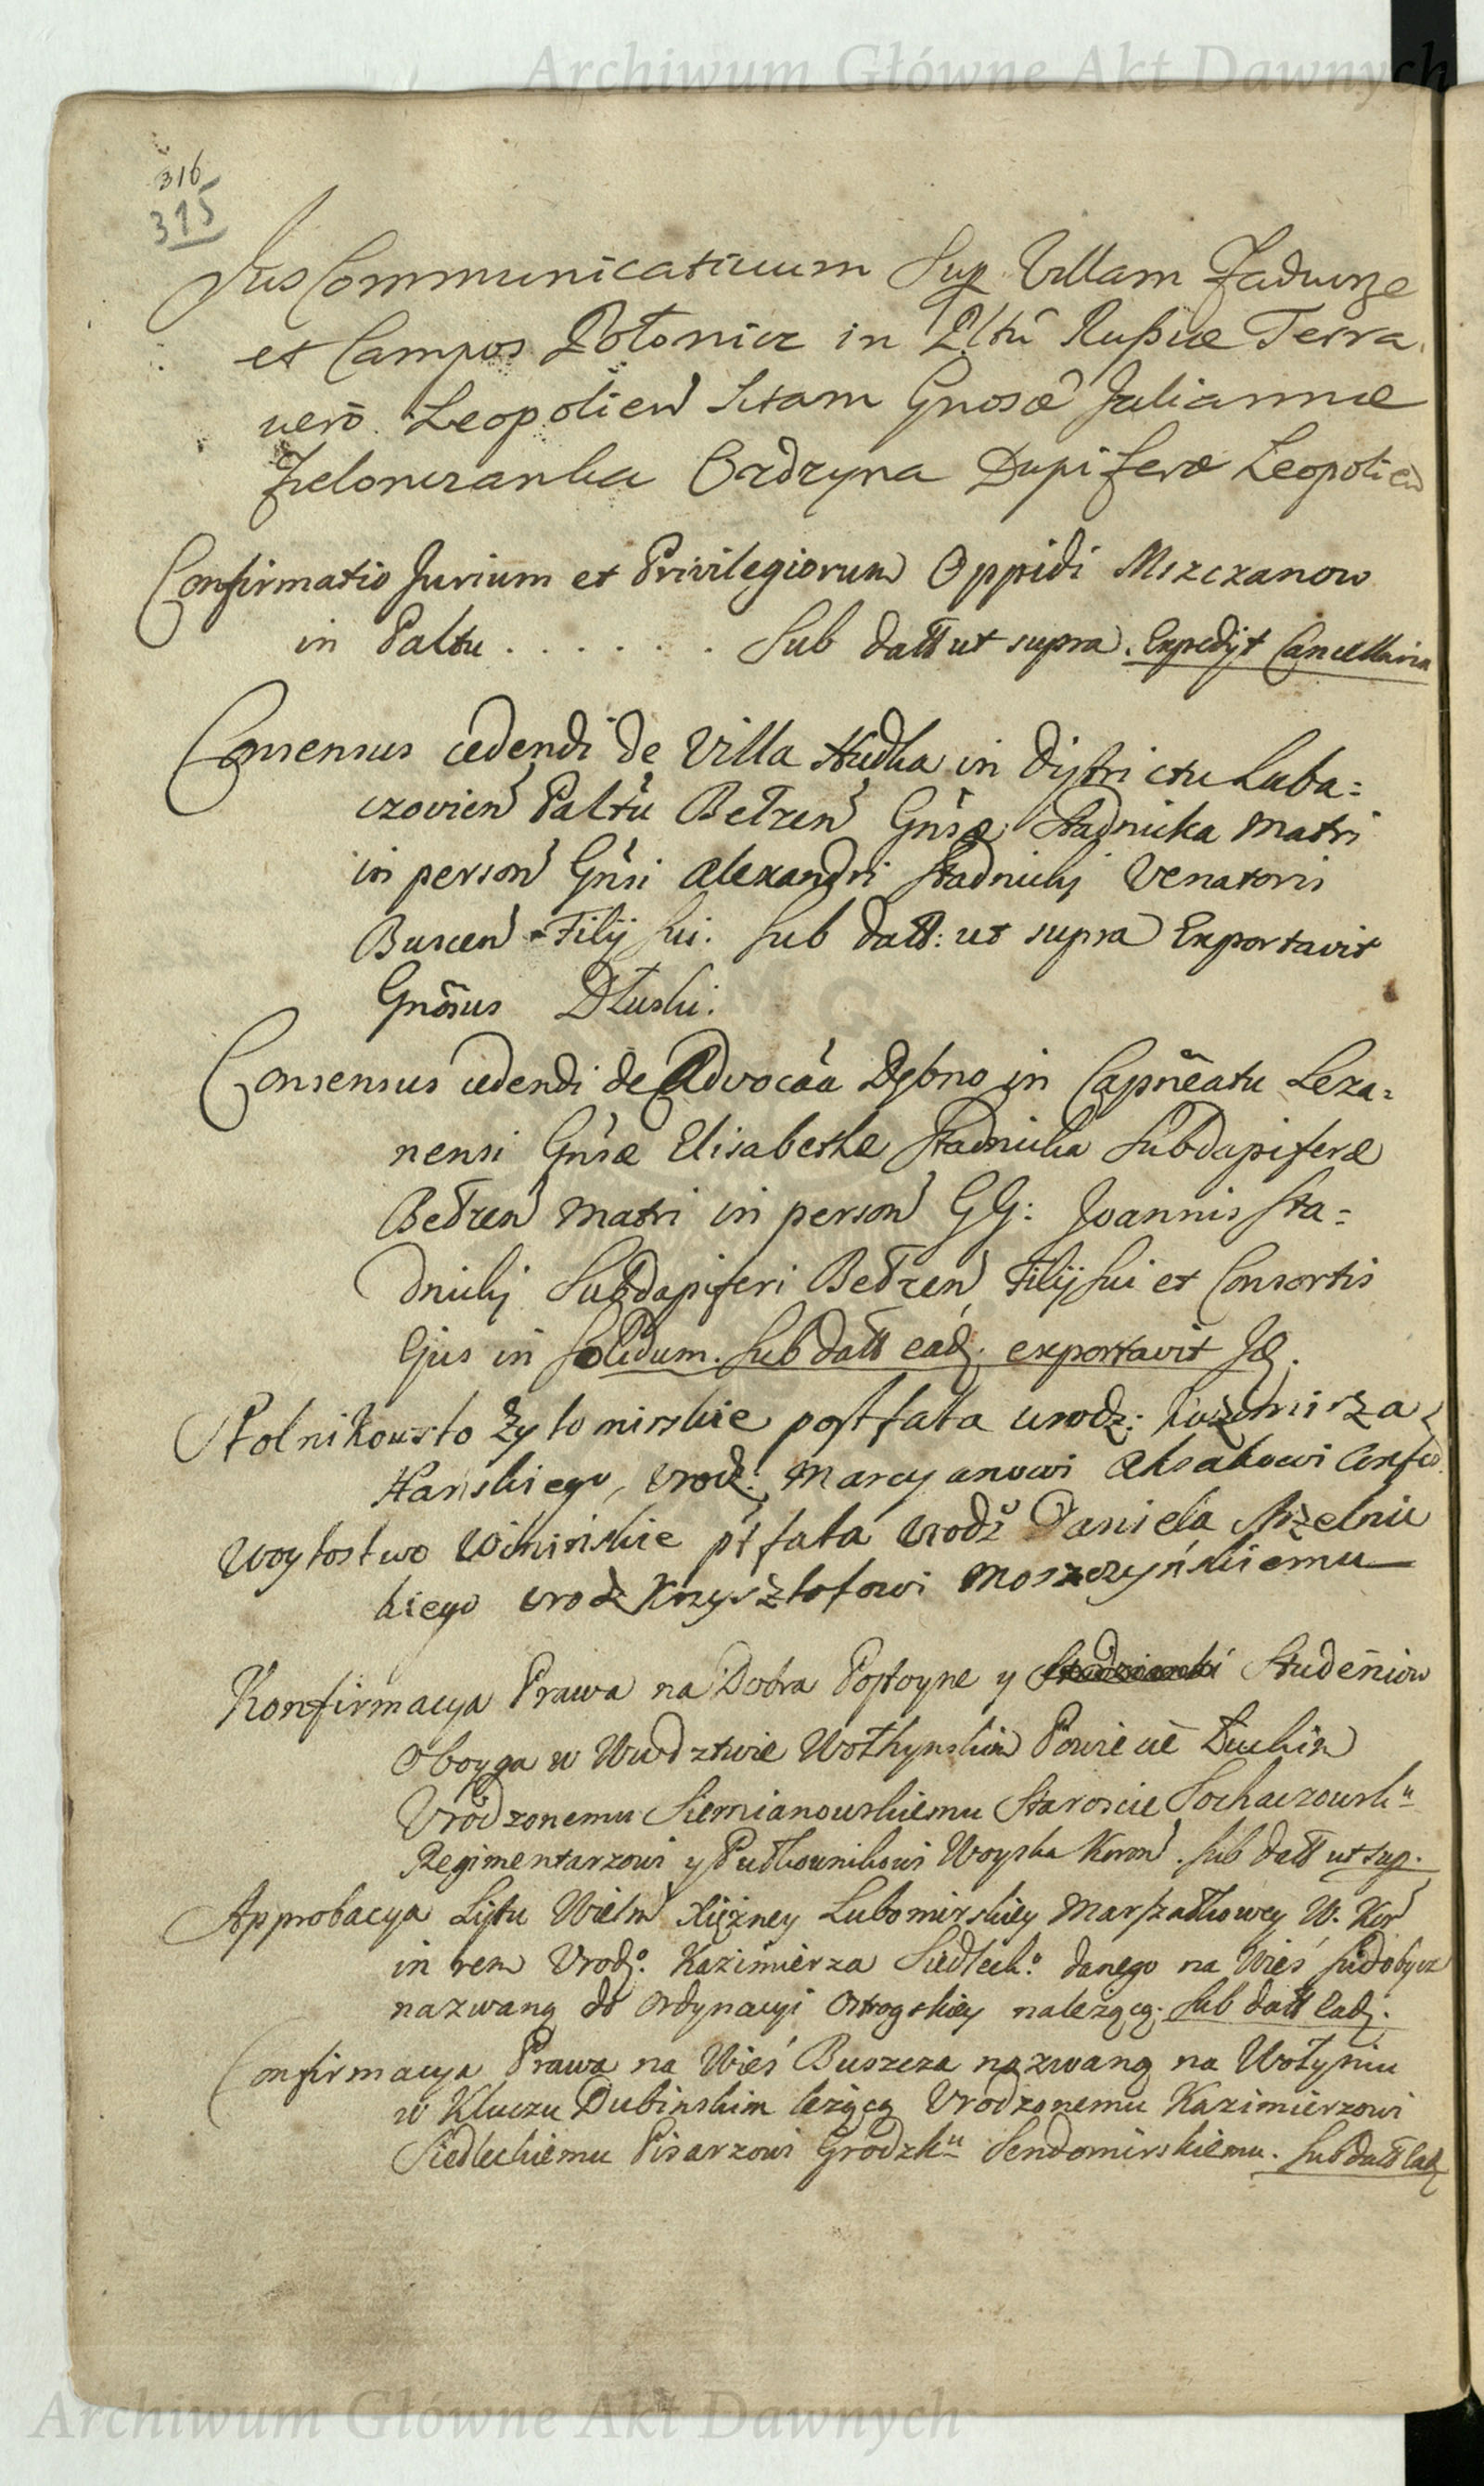 Archiwum Główne Akt Dawnych
316
315
Jus Communicativum Sup Villam Zadwrze
et Campos Połonice in Pltu Russiae Terra
vero Leopolien Sitam Gnosae Juliannae
Zielonczanka Ordzyna Dapiferae Leopolien
Confirmatio Jurium et Privilegiorum Oppidi Mszczanow
in Paltu . . . . . . . Sub datt ut supra. Expedijt Cancellaria
Consensus cedendi de Villa Hudka in Districtu Luba=
czovien Paltu Bełzen Gnsae Stadnicka Matri
in person Gnsi Alexandri Stadnickj Venatoris
Buscen Filij sui. Sub datt: ut supra Exportavit
Gnosus Dłuski.
Consensus cedendi de Advocaa Dębno in Capneatu Leza=
nensi Gnsae Elisabethae Stadnicka Subdapiferae
Bełzen Matri in person GG: Joannis Sta=
dnickj Subdapiferi Bełzen Filij sui et Consortis
Ejus in solidum. Sub datt ead. exportavit Jd.
Stolnikowsto Żytomirskie post fata urodz: Kazimirza
Hanskiego, Urodz: Marcyanowi Aksakowi Confer
Woytostwo Winińskie pt fata Urodz Daniela Strzelnic
kiego Urodz Krzysztofowi Moszczyńskiemu
Konfirmacya Prawa na Dobra Postoyne y Studzianki Studeniow
Oboyga w Wudztwie Wołhynskim Powiecie Łuckim
Urodzonemu Siemianowskiemu Staroscie Sochaczowsku
Regimentarzowi y Pułkownikowi Woyska Koron. Sub datt ut sup.
Approbacya Listu Wielm Xiężney Lubomirskiey Marszałkowey W. Kor
in rem Urodz. Kazimierza Siedleck.o danego na Wieś Sudobycz
nazwaną do Ordynacyi Ostrogskiey należącą. Sub datt ead.
Confirmacya Prawa na Wieś Buszcza nazwaną na Wołyniu
w Kluczu Dubinskim leżącą Urodzonemu Kazimierzowi
Siedleckiemu Pisarzowi Grodzku Sendomirskiemu. Sub datt ead
Archiwum Główne Akt Dawnych